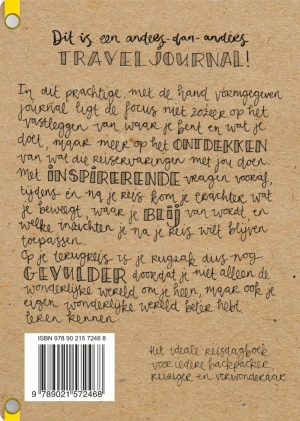 Dit is een anders-dan-anders
TRAVELJOURNAL!
In dit prachtige, met de hand vormgegeven
journal ligt de focus niet zozeer op het
vastleggen van waar je bent en wat je
doet, maar meer op het ONTDEKKEN
van wat die reiservaringen met jou doen.
Met INSPIRERENDE vragen vooraf,
tijdens en na je reis kom je erachter wat
je beweegt, waar je BLIJ van wordt, en
welke inzichten je na je reis wilt blijven
toepassen.
Op je terugreis is je rugzak dus nog
GEVULDER doordat je niet alleen de
wonderlijke wereld om je heen, maar ook je
eigen wonderlijke wereld beter hebt
leren kennen.
ISBN 978 90 215 7246 8
9 789021 572468
Het ideale reisdagboek
voor iedere backpacker,
reiziger en verwonderaar